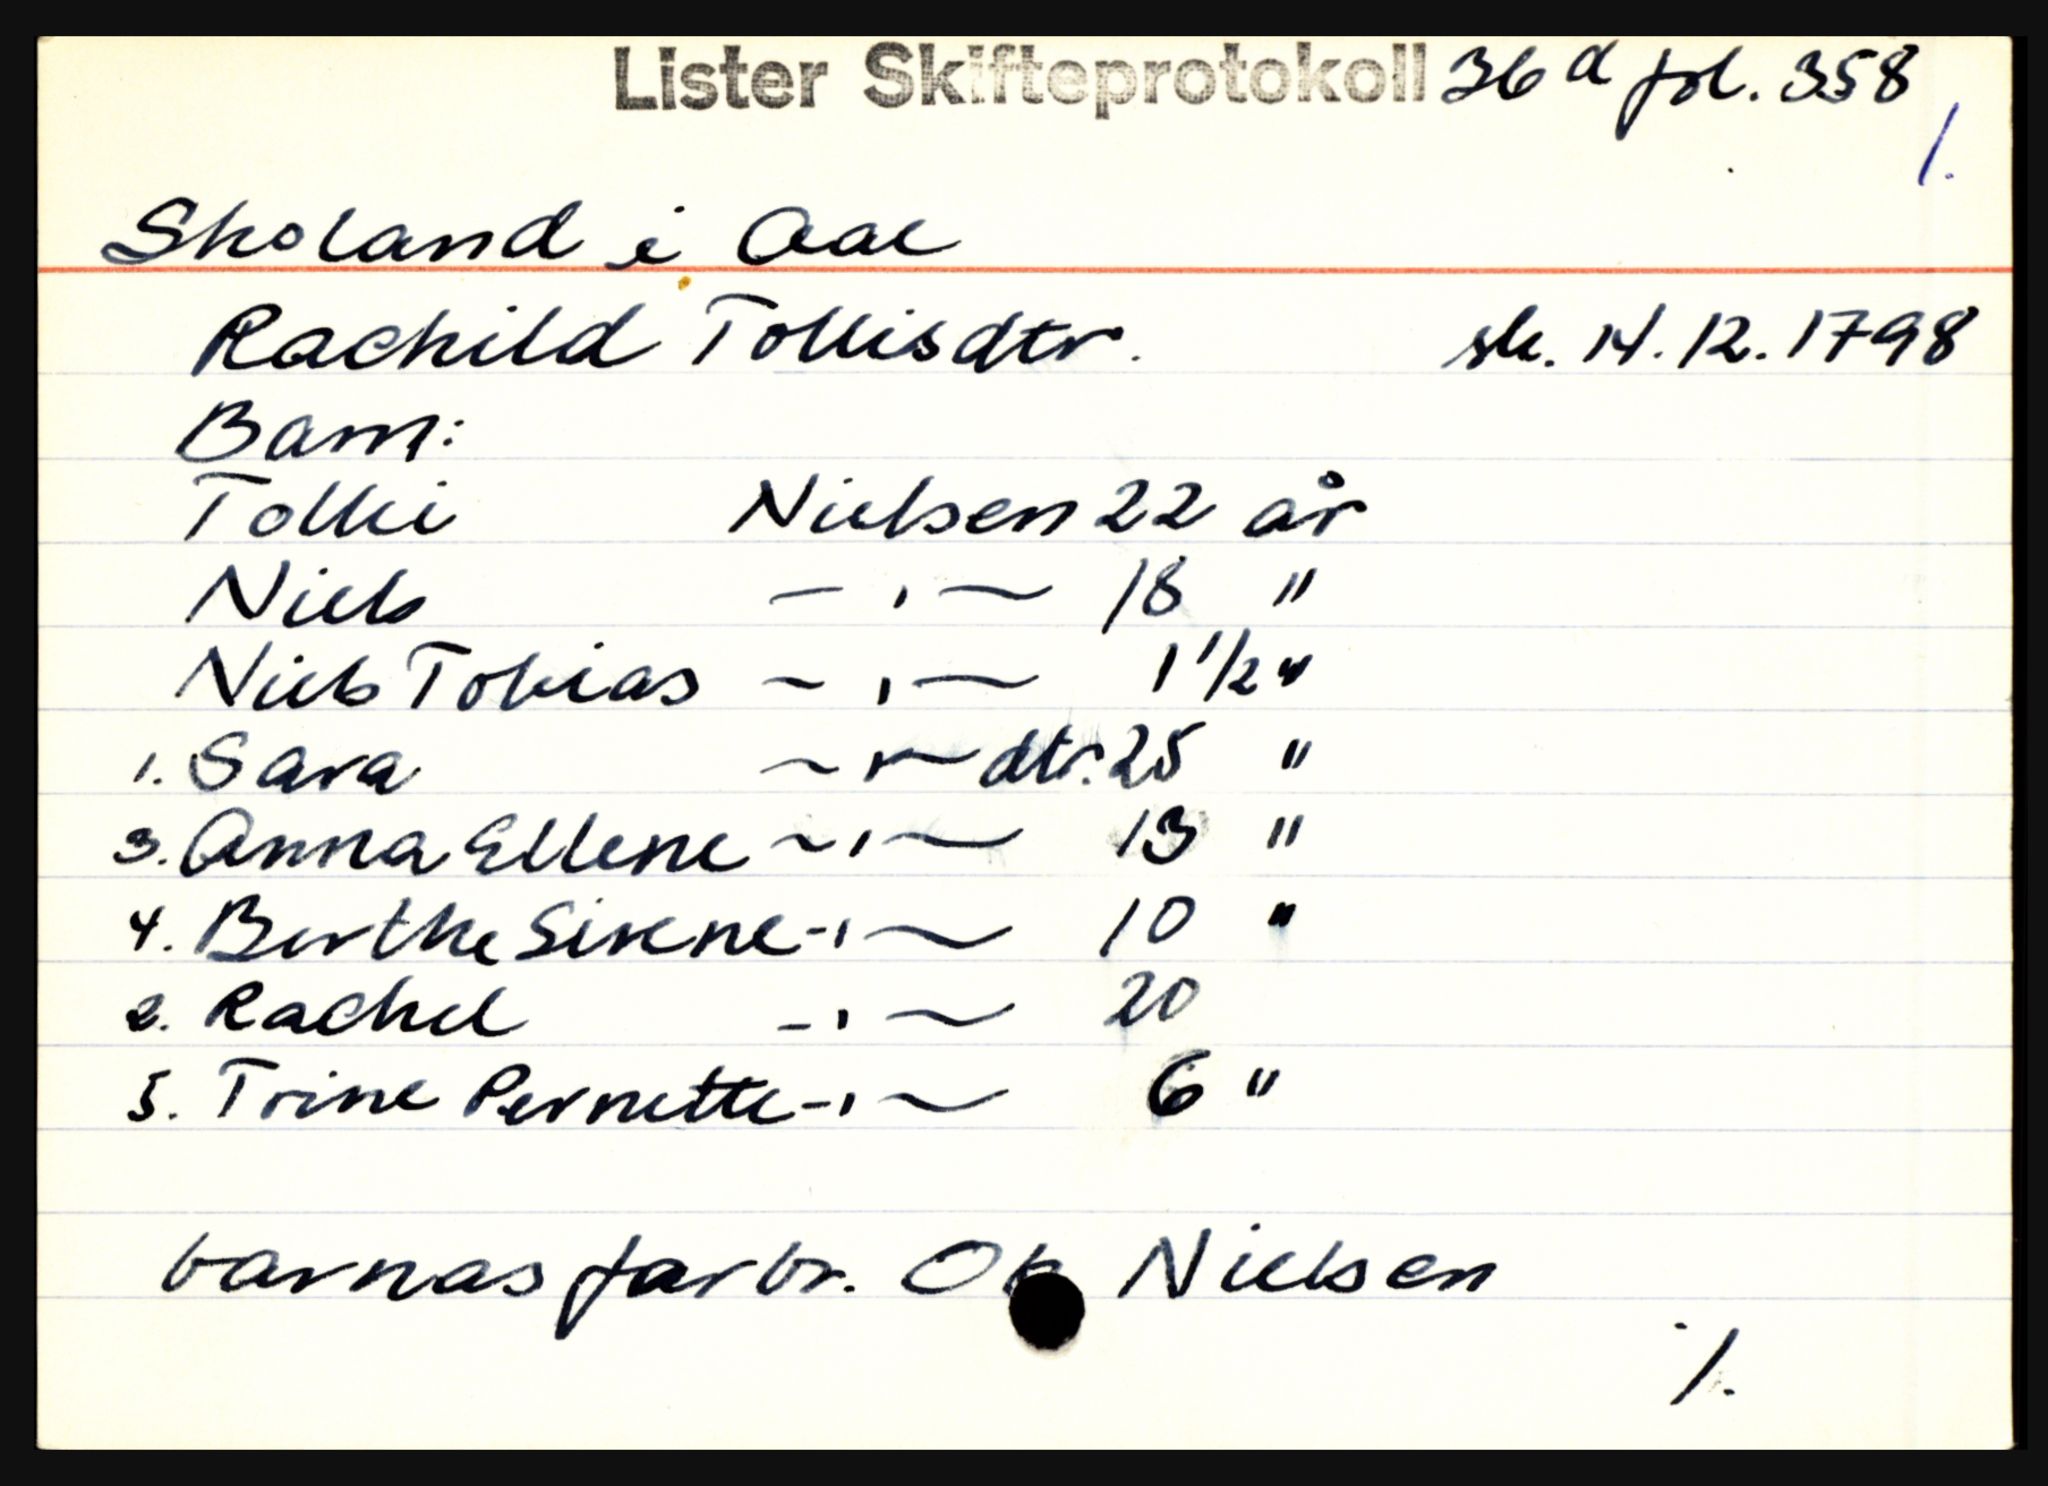 Lister Skifteprotokoll 36 a fol. 358
/.
Skoland i Aae
Rachild Tollisdtr. sk. 14.12.1798
Barn:
Tolli Nielsen 22 år
Niels - , - 18 "
Niels Tobias - , - 1 1/2 "
1. Sara - " - dtr. 25 "
3. Anna Ellene - , - 13 "
4. Berthe Sirene - , - 10 "
2. Rachel - , - 20
5. Trine Pernette - , - 6 "
barnas farbr. Nielsen
./.